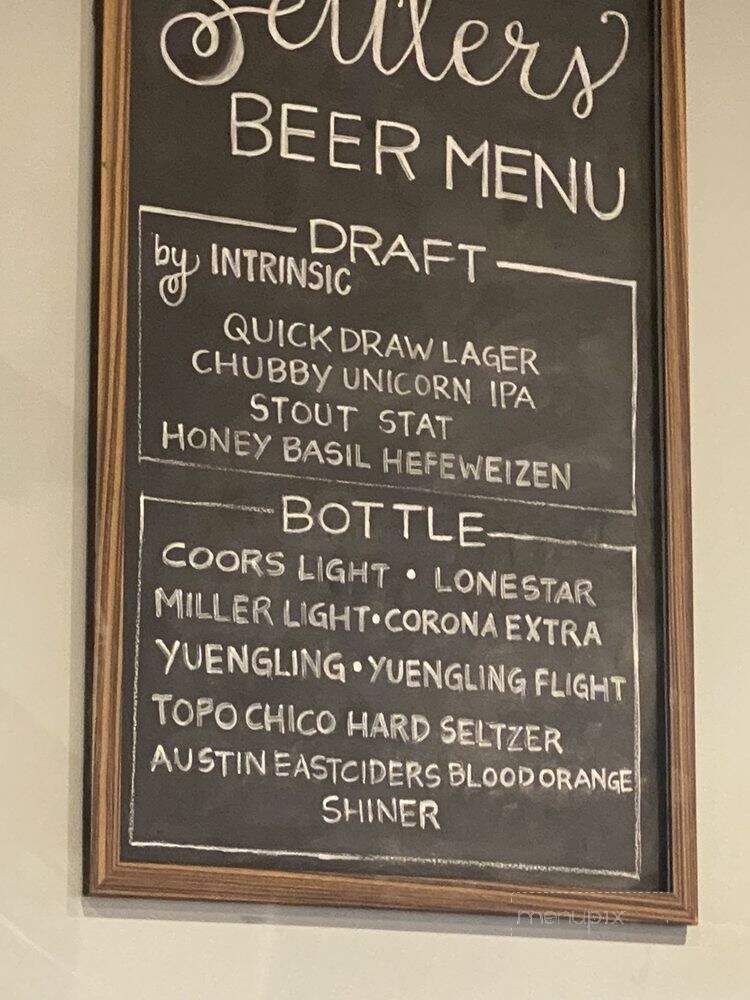 Settlers
BEER MENU
DRAFT
by INTRINSIC
QUICK DRAW LAGER
CHUBBY UNICORN IPA
STOUT STAT
HONEY BASIL HEFEWEIZEN
BOTTLE
COORS LIGHT • LONESTAR
MILLER LIGHT • CORONA EXTRA
YUENGLING • YUENGLING FLIGHT
TOPO CHICO HARD SELTZER
AUSTIN EASTCIDERS BLOOD ORANGE
SHINER
menupix